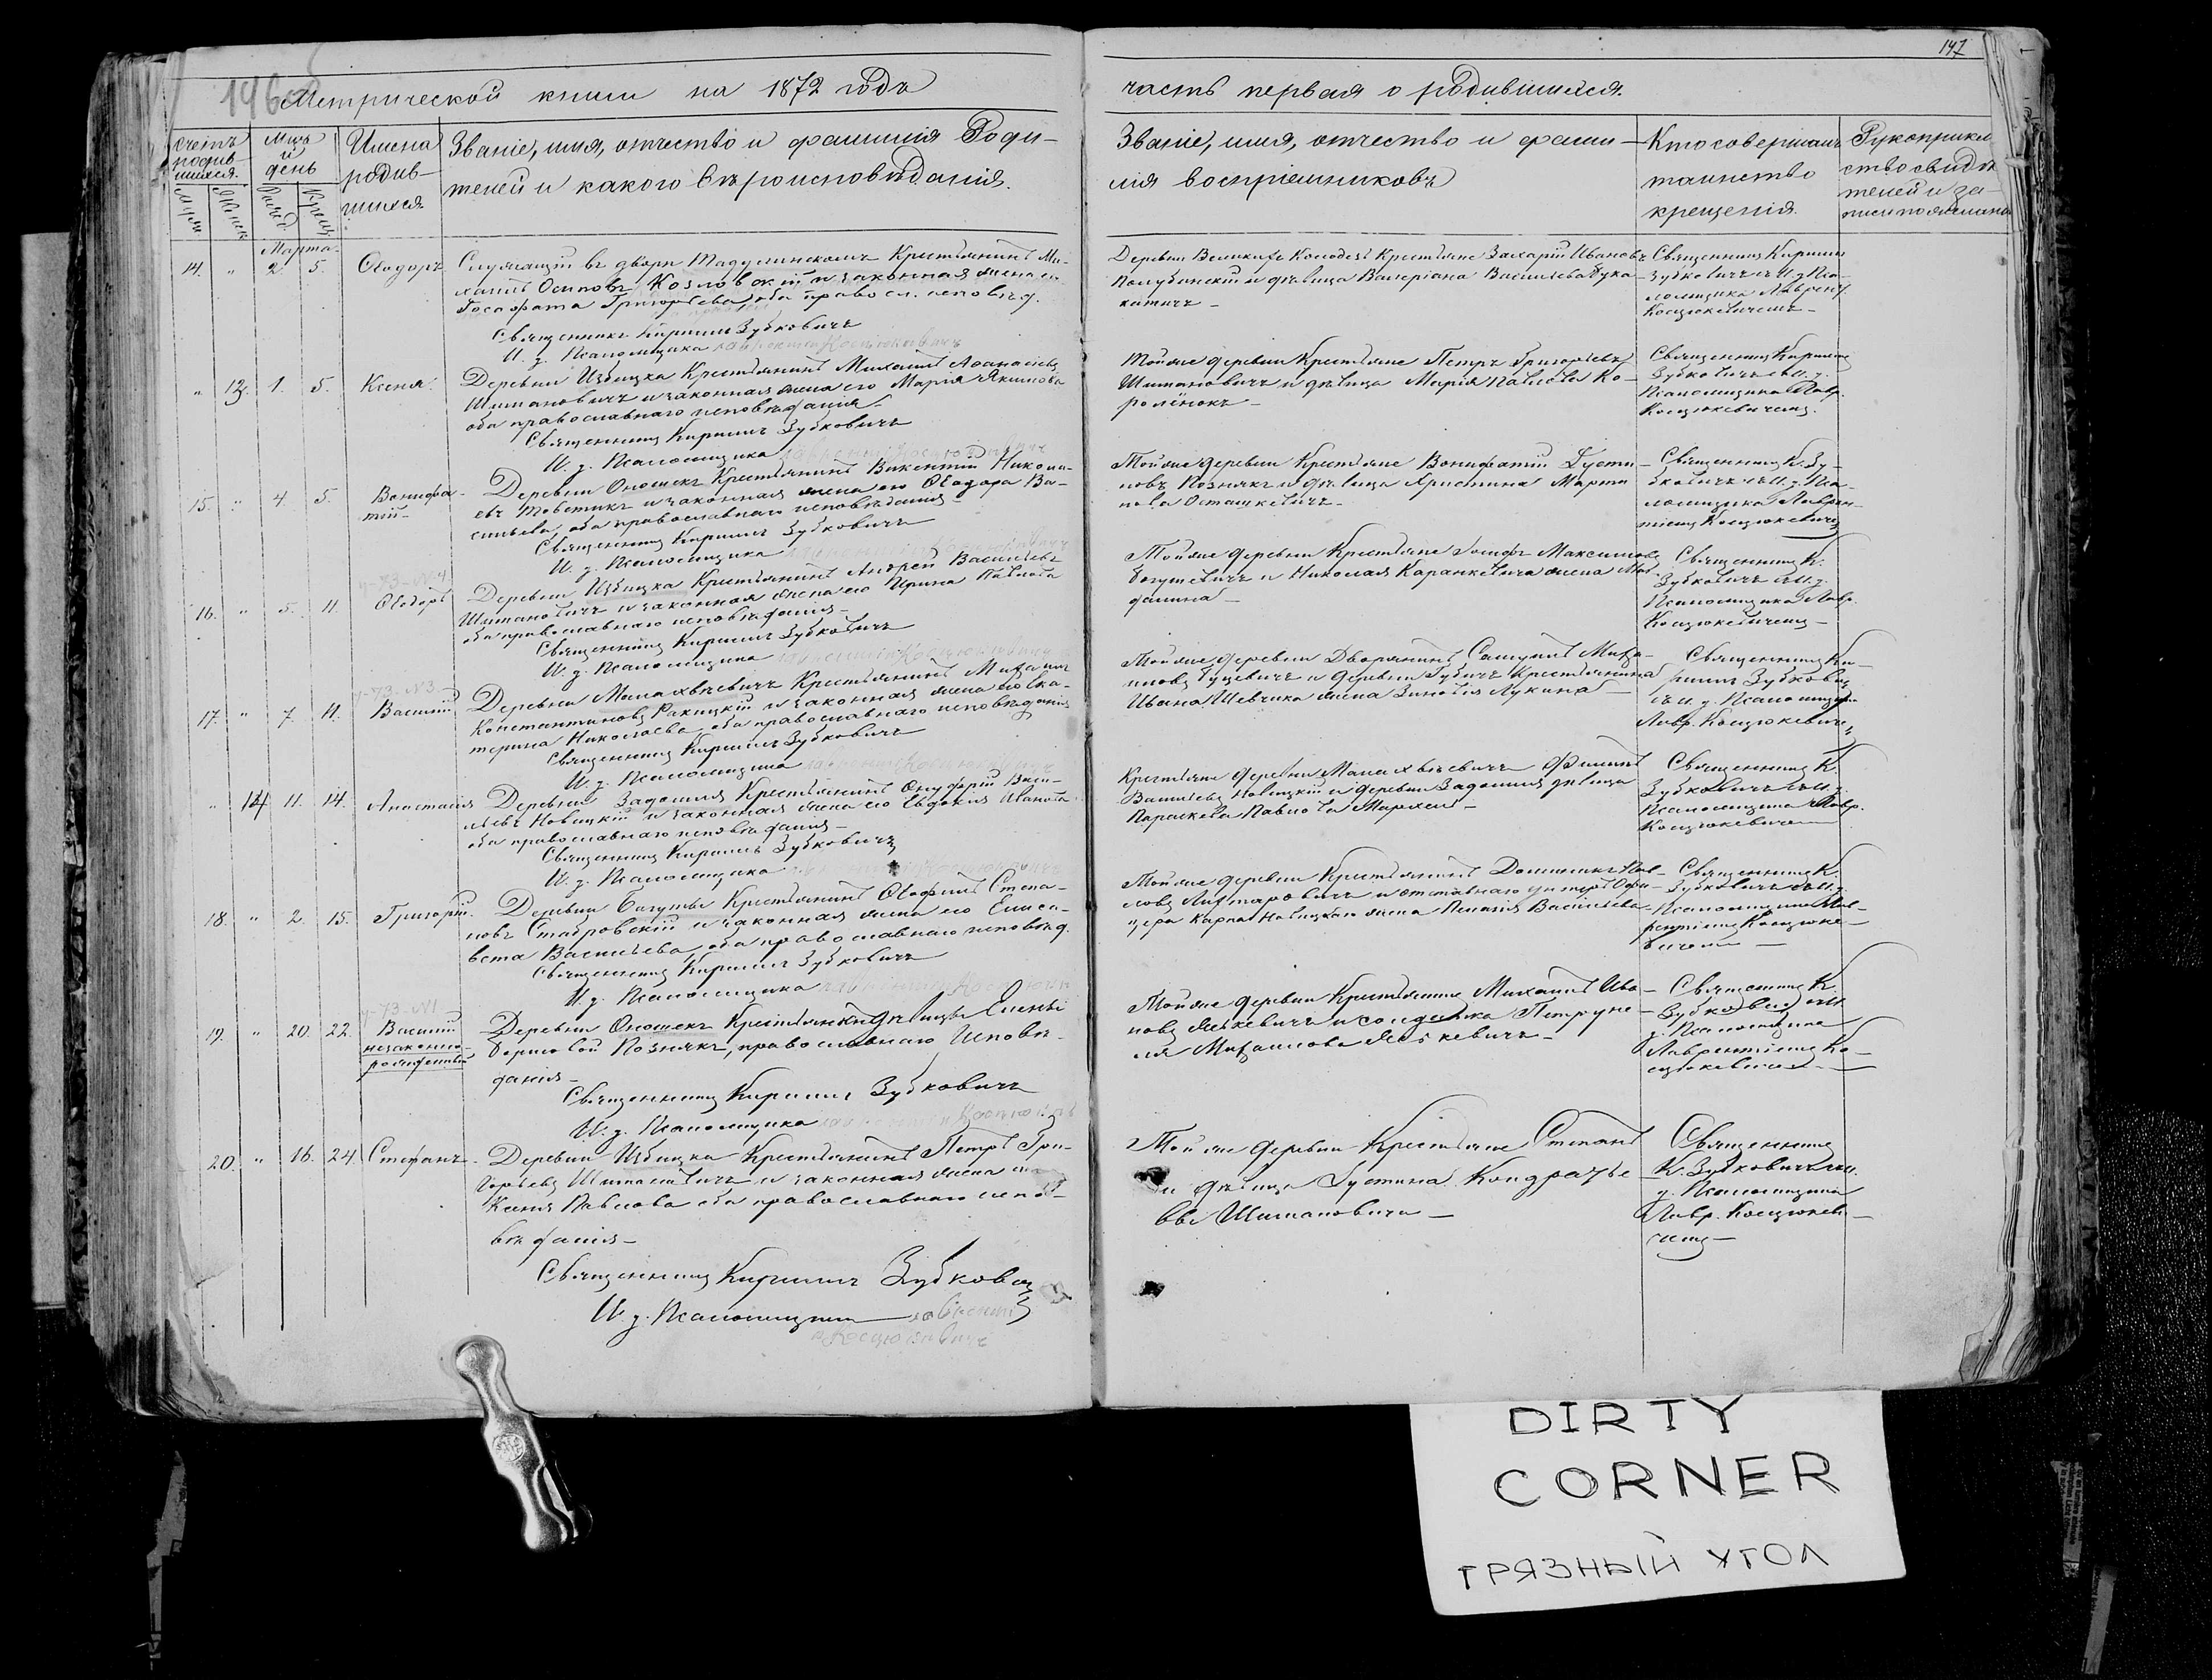 147
146
Метрической книги на 1872 годъ
часть первая о родившихся.
счетъ родив-
шихся.
Муж.
Женск.
Мѣсяцъ
и
день
Рожд.
Крещ.
Имена
родив-
шихся
Званіе, имя, отчество и фамилія Роди-
телей и какого вѣроисповѣданія.
Званіе, имя, отчество и фами-
лія воспріемниковъ
Кто совершалъ
таинство
крещенія.
Рукоприклад
ство свидѣ
телей и за-
писи по желанію
Марта
14. " 2. 5. Ѳеодоръ
Служащій въ дворѣ Тадулинскомъ Крестьянинъ Ми-
хаилъ Осиповъ Козловскій и законная жена его
Іосафата Григорьева оба правосл. исповѣд.
Священникъ Кириллъ Зубковичъ
И. д. Псаломщика
Деревни Великихъ Крестьяне Захарій Ивановъ
и дѣвица Валеріана Васильева
Священникъ Кириллъ
Зубковичъ съ И. д. Пса-
ломщика
Коцюкевичемъ
" 13. 1. 5. Ксенія.
Деревни Избицка Крестьянинъ Михаилъ Аѳанасіевъ
Шимановичъ и законная жена его Марія Якимова
оба православнаго исповѣданія
Священникъ Кириллъ Зубковичъ
И. д. Псаломщика
Той же деревни Крестьяне Петръ Григорьевъ
Шимановичъ и дѣвица Марія Павлова Ко-
ролёнокъ
Священникъ Кириллъ
Зубковичъ съ И. д.
Псаломщика Лавр.
Коцюкевичемъ.
15. " 4. 5. Вонифа-
тій
Деревни Оношекъ Крестьянинъ Викентій Никола-
евъ Товстикъ и законная жена его Ѳеодора Ва-
сильева, оба православнаго исповѣданія
Священникъ Кириллъ Зубковичъ
И. д. Псаломщика
Той же деревни Крестьяне Вонифатій Іусти-
новъ Познякъ и дѣвица Христина Марти
нова Осташкевичъ
Священникъ К. Зу-
бковичъ съ И. д. Пса-
ломщика Лаврен-
тіемъ Коцюкевичемъ
16. " 5. 11. Ѳеодоръ
Деревни Избицка Крестьянинъ Андрей Васильевъ
Шимановичъ и законная жена его Ирина Павлова
оба православнаго исповѣданія
Священникъ Кириллъ Зубковичъ
И. д. Псаломщика
Той же деревни Крестьяне Іосифъ Максимовъ
Богушевичъ и Николая Каранкевича жена Маг-
далина
Священникъ К.
Зубковичъ съ И. д.
Псаломщика Лавр.
Коцюкевичемъ
ч-73-№3
17. " 7. 11. Василій
Деревни Малахвѣевичъ Крестьянинъ Михаилъ
Константиновъ Ракицкій и законная жена его Ека-
терина Николаева, оба православнаго исповѣданія
Священникъ Кириллъ Зубковичъ
И. д. Псаломщика
Той же деревни Дворянинъ Самуилъ Миха-
иловъ Гуцевичъ и деревни Губичъ Крестьянина
Ивана Шевчика жена Зиновія Лукина
Священникъ Ки-
риллъ Зубковичъ
съ И. д. Псаломщика
Лавр. Коцюкевичемъ
" 14 11. 14. Анастасія
Деревни Задошия Крестьянинъ Онуфрій Васи-
льевъ Новицкій и законная жена его Евдокія Иванова
оба православнаго исповѣданія
Священникъ Кириллъ Зубковичъ
И. д. Псаломщика
Крестьяне деревни Малахвѣевичъ Филиппъ
Васильевъ Новицкій и деревни Задошия дѣвица
Параскева Павлова
Священникъ К.
Зубковичъ съ И. д.
Псаломщика Лавр.
Коцюкевичемъ
18. " 2. 15. Григорій.
Деревни Багуты Крестьянинъ Ѳеофилъ Степа-
новъ Ставровскій и законная жена его Елиса-
вета Васильева, оба православнаго исповѣд.
Священникъ Кириллъ Зубковичъ
И. д. Псаломщика
Той же деревни Крестьянинъ Доминикъ Пав-
ловъ и отставнаго унтеръ Офи-
цера Карпа Новицкаго жена Пелагія Васильева
Священникъ К.
Зубковичъ съ И. д.
Псаломщика Лав-
рентіемъ Коцюке-
вичемъ
ч-73-№1
19. " 20. 22. Василій
незаконно-
рожденный
Деревни Оношекъ Крестьянки дѣвицы Елены
Познякъ, православнаго Исповѣ-
данія
Священникъ Кириллъ Зубковичъ
И. д. Псаломщика
Той же деревни Крестьянинъ Михаилъ Ива-
новъ и солдатка Петруне-
ля Михаилова
Священникъ К.
Зубковичъ съ И.
д. Псаломщика
Лаврентіемъ Ко-
цюкевичемъ
20. " 16. 24. Стефанъ
Деревни Избицка Крестьянинъ Петръ Гри-
горьевъ Шимановичъ и законная жена его
Ксенія Павлова оба православнаго испо-
вѣданія
Священникъ Кириллъ Зубковичъ
И. д. Псаломщика Лаврентій
Коцюкевичъ
Той же деревни Крестьяне Степанъ
и дѣвица Іустина Кондратье
вы Шимановичи
Священникъ
К. Зубковичъ съ И.
д. Псаломщика
Лавр. Коцюкеви-
чемъ
DIRTY
CORNER
ГРЯЗНЫЙ УГОЛ